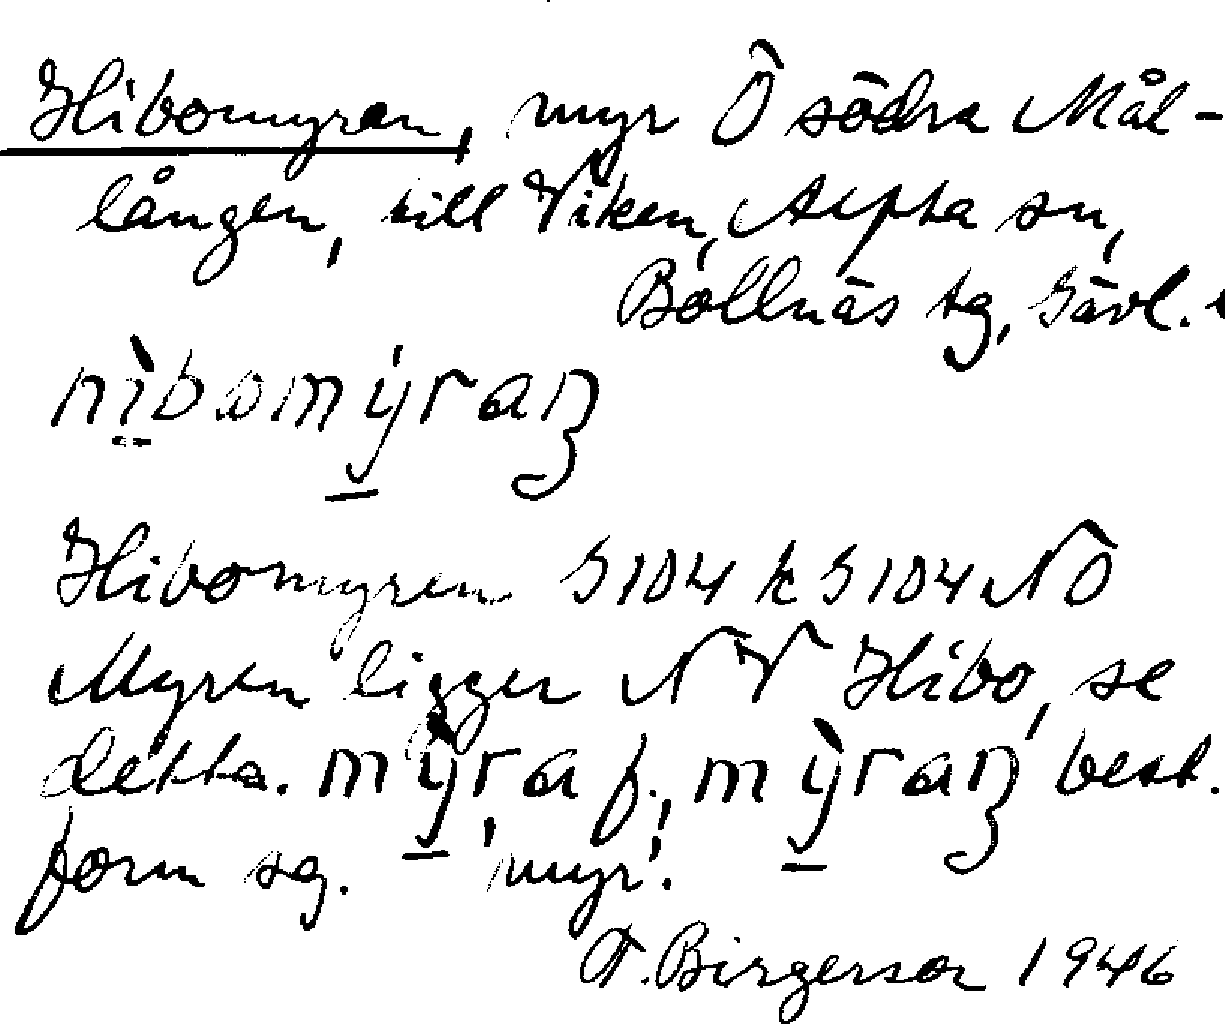 Hibomyren, myr Ö södra Mål-
lången, till Viken, Alfta sn,
Bollnäs tg, Gävl.
nìbomýraɲ
Hibomyren S104 k S104 NÖ
Myren ligger NV Hibo, se
detta. mỳra f., mỳraɲ best.
form sg. 'myr'.
T. Birgerson 1946